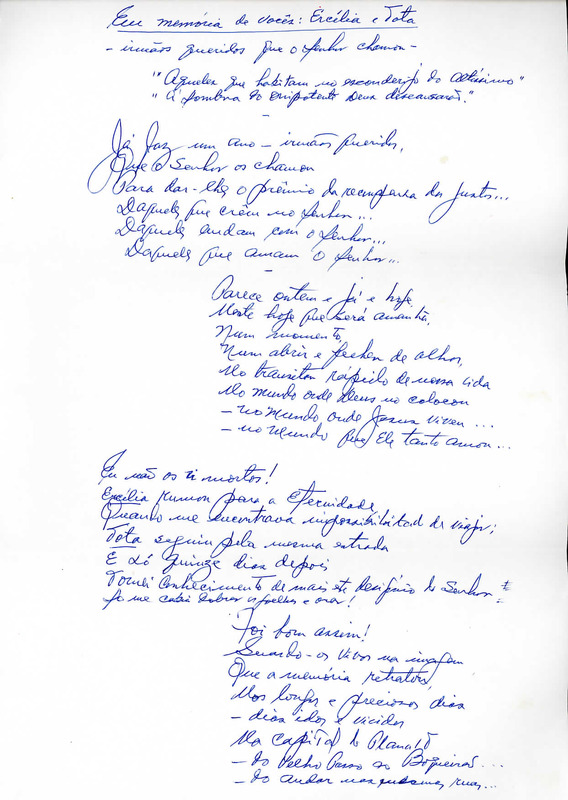 Em memória de vocês: Ercília e Tota
- irmãos queridos que o Senhor chamou -
"Aqueles que habitam no esconderijo do Altíssimo"
"à sombra do onipotente Deus descansarão."
Já faz um ano - irmãos queridos,
Que o Senhor os chamou
Para dar-lhes o prêmio da recompensa dos justos...
Daqueles que crêem no Senhor...
Daqueles andam com o Senhor...
Daqueles que amam o Senhor...
Parece ontem e já é hoje,
Neste hoje que será amanhã,
Num momento,
Num abrir e fechar de olhos,
No transitar rápido de nossa vida
No mundo onde Deus no colocou
- no mundo onde Jesus viveu...
- no mundo que Ele tanto amou...
Eu não os vi mortos!
Ercília rumou para a eternidade,
Quando me encontrava impossibilitad de viajar;
Tota seguiu pela mesma estrada
E só quinze dias depois
Tomei conhecimento de mais este desígnio do Senhor
Só me cabia dobrar os joelhos e orar!
Foi bom assim!
Guardo-os vivos na imagem
Que a memória retratou,
Nos longos e preciosos dias
- dias idos e vividos
Na capital do Planalto
- do Velho Passo ao Boqueirão...
- do andar nas mesmas ruas...